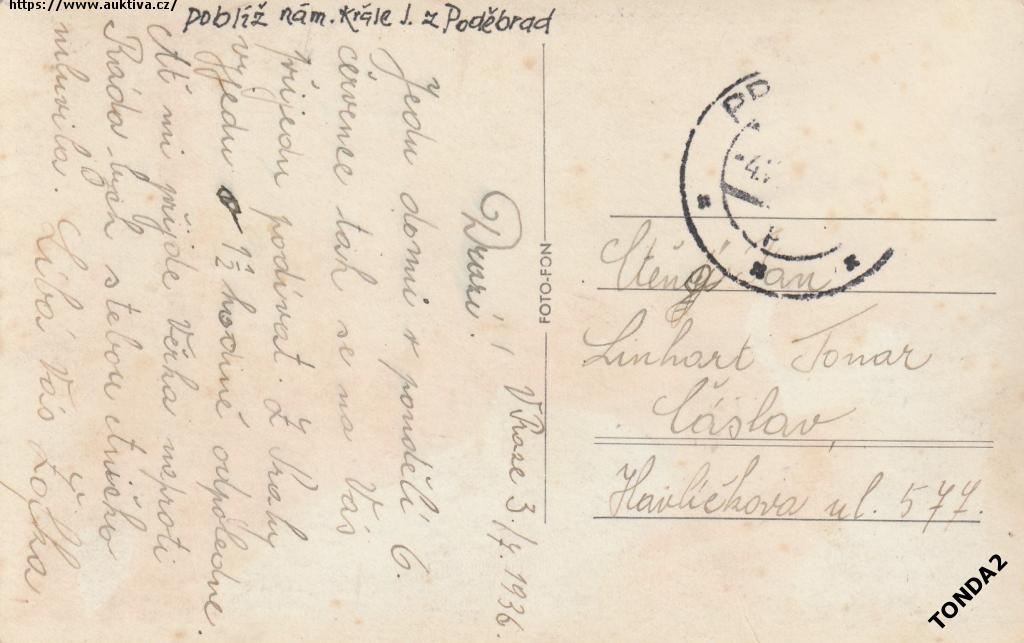 https://www.auktiva.cz/
poblíž nám. krále J. z Poděbrad
V Praze 3./7. 1936.
Drazí!
Jedu domu v pondělí 6.
července tak se na Vás
přijedu podívat. Z Prahy
vyjedu o 1½ hodině odpoledne.
Ať mi přijde Věrka naproti
Ráda bych s tebou
mluvila. Líbá Vás
FOTO-FON
PR
-4.V
Jan
Linhart Tonar
Čáslav
Havlíčkova ul. 577.
TONDA2